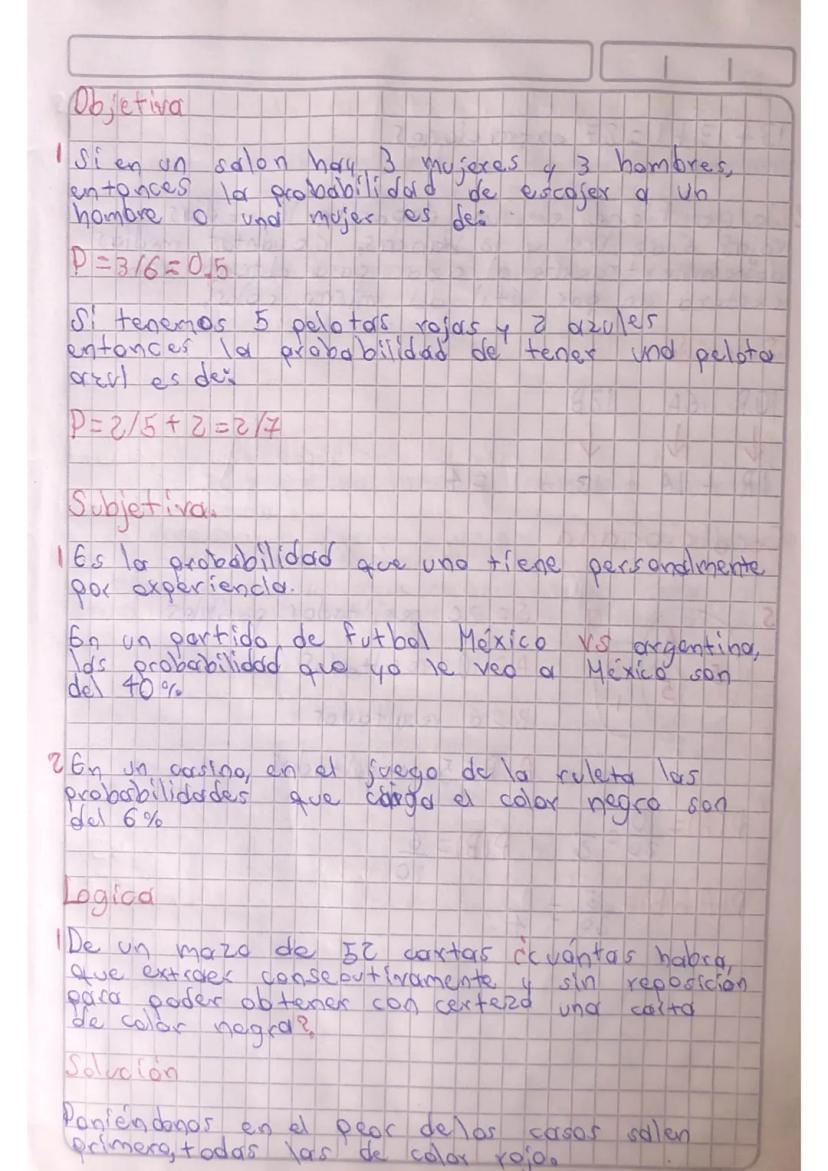 Objetiva
1 Si en un salon hay 3 mujeres y 3 hombres,
entonces la probabilidad de escojer a un
hombre o una mujer es de:
P = 3/6 = 0.5
Si tenemos 5 pelotas rojas y 2 azules
entonces la probabilidad de tener una pelota
azul es de:
P = 2/5 + 2 = 2/7
Subjetiva.
1 Es la probabilidad que uno tiene personalmente
por experiencia.
En un partido de futbol México VS argentina,
las probabilidad que yo le veo a México son
del 40%
2 En un casino, en el juego de la ruleta las
probabilidades que caiga el color negro son
del 6%
Logica
1 De un mazo de 52 cartas ¿cuántas habra,
que extraer consecutivamente y sin reposición
para poder obtener con certeza una carta
de color negra?
Solución
Poniéndonos en el peor de los casos salen
primero, todas las de color rojo.